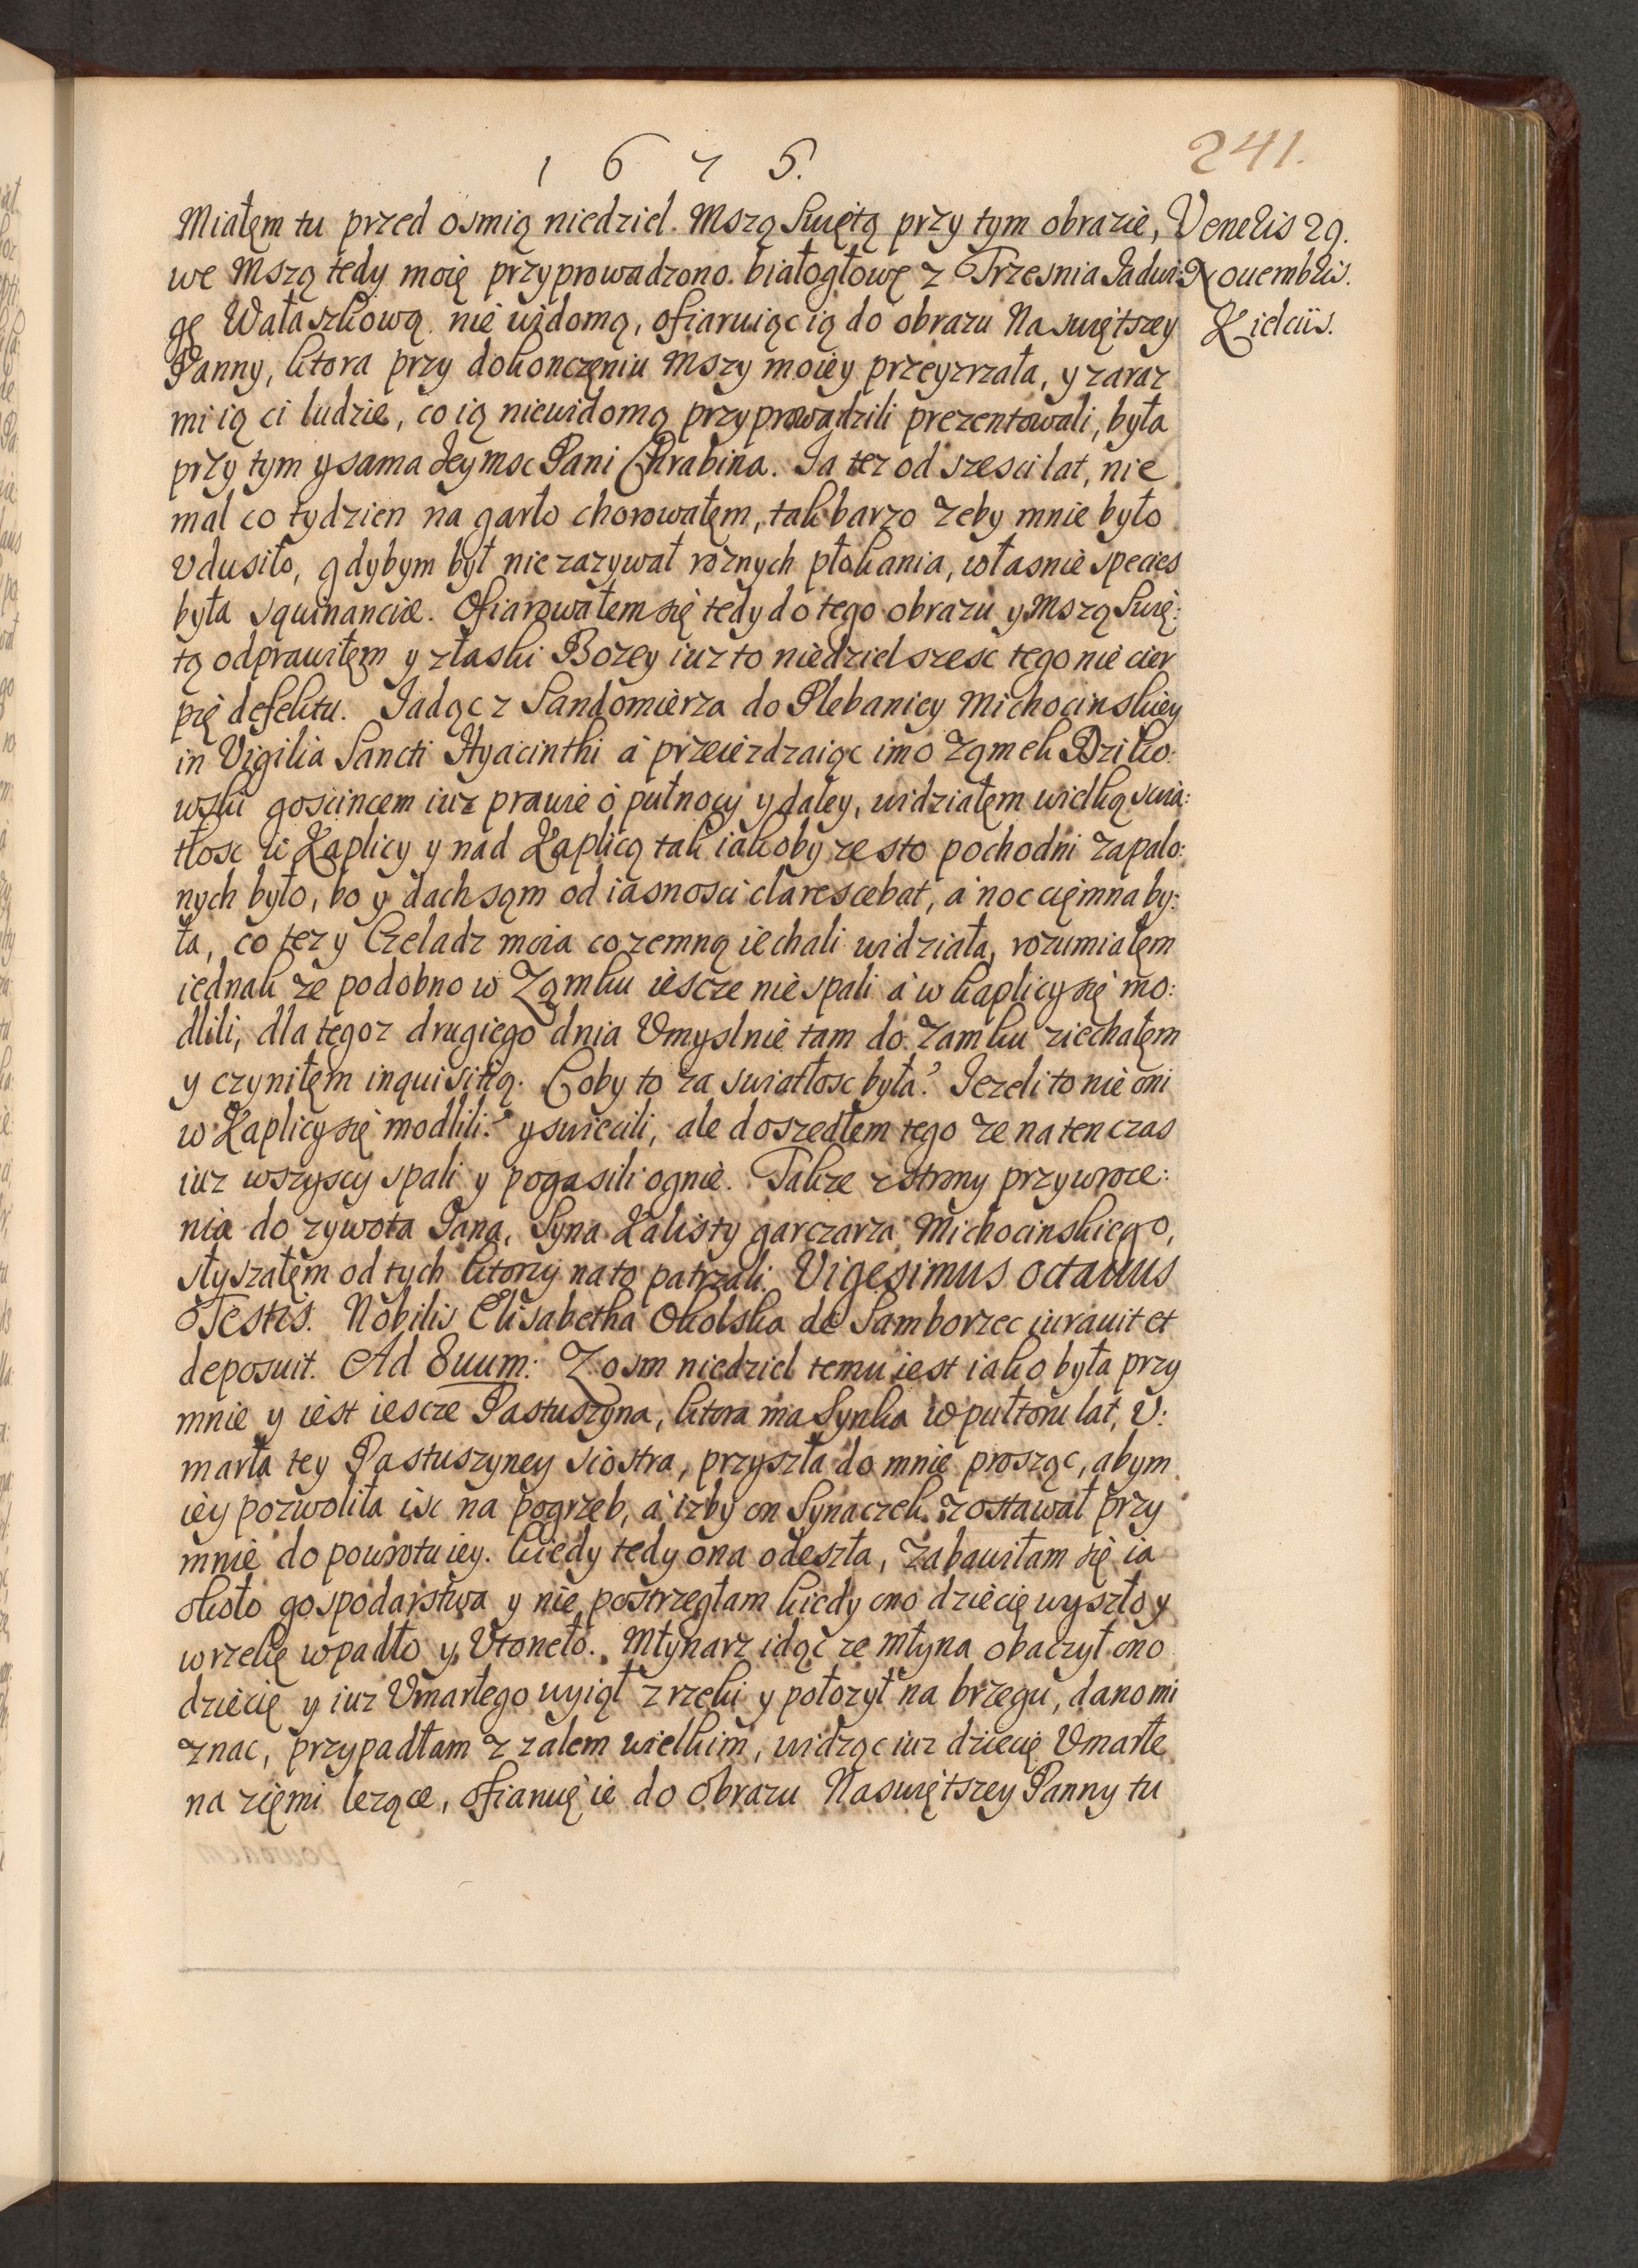 1675.
241.
Miałęm tu przed osmią niedziel. Mszą Swiętą przy tym obrazie,
Veneris 29.
we Mszą tedy moię przyprowadzono. białogłowę z Trzesnia Jadwi:
Nouembris.
gę Wałaszkową nie widomą, ofiaruiąc ią do obrazu Naswiętszey
Kielciis.
Panny, ktora przy dokonczęniu Mszy moiey przeyzrzała, y zaraz
mi ią ci ludzie, co ią niewidomą przyprowadzili prezentowali, była
przy tym y sama Jeymsc Pani Chrabina. Ja tez od szesci lat, nie
mal co tydzien na garło chorowałęm, tak barzo zeby mnie było
vdusiło, gdybym był nie zazywał roznych płokania, własnie species
była squinanciæ. Ofiarowałem się tedy do tego obrazu y Mszą Swię:
tą odprawiłęm y złaski Bozey iuz to niedziel szesc tego nie cier
pię defektu. Jadąc z Sandomierza do Plebaniey Michocinskiey
in Vigilia Sancti Hyacinthi á przeiezdzaiąc imo Ząmek Dziko:
wski goscincem iuz prawie o pułnocy y daley, widziałęm wielką swia:
tłosc w Kaplicy y nad Kaplicą tak iakoby ze sto pochodni zapalo:
nych było, bo y dach sąm od iasnosci clarescebat, á noc cięmna by:
ła, co tez y Czeladz moia co zemną iechali widziała, rozumiałęm
iednak ze podobno w Zamku iescze nie spali á w kaplicy się mo:
dlili, dla tegoz drugiego dnia Vmyslnie tam do Zamku ziechałęm
y czyniłęm inquisitią. Coby to za swiatłosc była? Jezeli to nie oni
w Kaplicy się modlili? y swiecili, ale doszedłem tego ze na ten czas
iuz wszyscy spali y pogasili ognie. Takze z strony przywroce:
nia do zywota Jana, Syna Kalisty garczarza Michocinskiego,
słyszałęm od tych ktorzy na to patrzali. Vigesimus octauus
Testis. Nobilis Elisabetha Okolska de Samborzec iurauit et
deposuit. Ad 8uum: Z osm niedziel temu iest iako była przy
mnie y iest iescze Pastuszyna, ktora ma Synka w pułtoru lat, V:
marła tey Pastuszyney siostra, przyszła do mnie prosząc, abym
iey pozwoliła isc na pogrzeb, á izby on Synaczek zostawał przy
mnie do powrotu iey. Kiedy tedy ona odeszła, zabawiłam się ia
około gospodarstwa y nie postrzegłam kiedy ono dziecię wyszło y
w rzekę wpadło y Vtoneło. Młynarz idąc ze młyna obaczył ono
dziecię y iuz Vmarłego wyiął z rzeki y połozył na brzegu, dano mi
znac, przypadłam z zalem wielkim, widząc iuz dziecię Vmarłe
na zięmi lezące, ofiaruię ie do obrazu Naswiętszey Panny tu